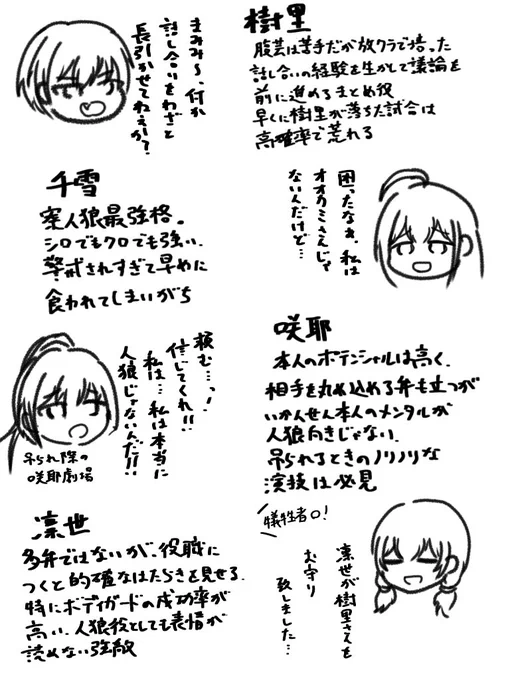 樹里
腹芸は苦手だが放クラで培った
話し合いの経験を生かして議論を
前に進めるまとめ役
早くに樹里が落ちた試合は
高確率で荒れる
まみみ〜、何か
話し合いをわざと
長引かせてねぇか?
千雪
案人狼最強格。
シロでもクロでも強い、
警戒されすぎて早めに
食われてしまいがち
困ったなぁ、私は
オオカミさんじゃ
ないんだけど…
咲耶
本人のポテンシャルは高く、
相手を丸め込める弁も立つが
いかんせん本人のメンタルが
人狼向きじゃない、
吊られるときのノリノリな
演技は必見
頼む…っ!
信じてくれ!!
私は…私は本当に
人狼じゃないんだ!!
吊られ際の
咲耶劇場
凛世
多弁ではないが、役職に
つくと的確なはたらきを見せる、
特にボディガードの成功率が
高い、人狼役としても表情が
読めない強敵
犠牲者0!
凛世が樹里さんを
お守り
致しました…